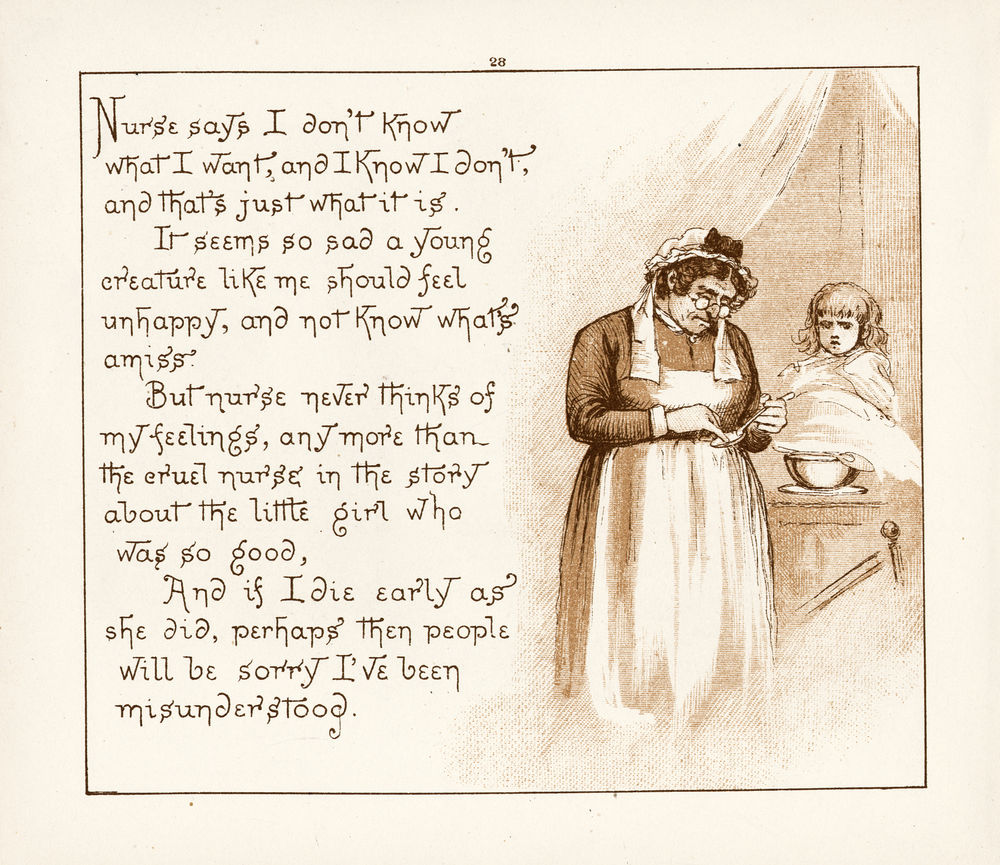 28
Nurse says I don't know
what I want, and I know I don't,
and that's just what it is.
It seems so sad a young
creature like me should feel
unhappy, and not know what's
amiss.
But nurse never thinks of
my feelings, any more than
the cruel nurse in the story
about the little girl who
was so good,
And if I die early as
she did, perhaps then people
will be sorry I've been
misunderstood.